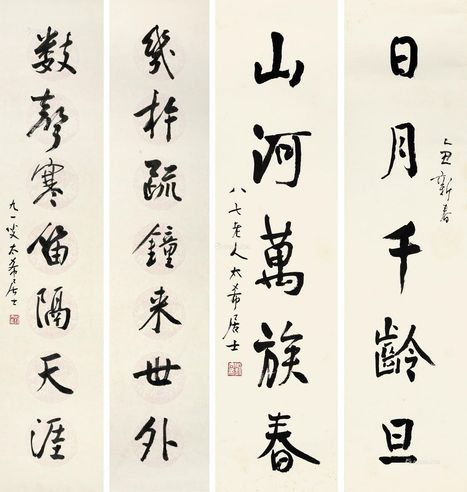 日月千齡旦
乙丑新春
山河萬族春
八七老人太希居士
幾杵疏鐘来世外
数聲寒笛隔天涯
九一叟太希居士